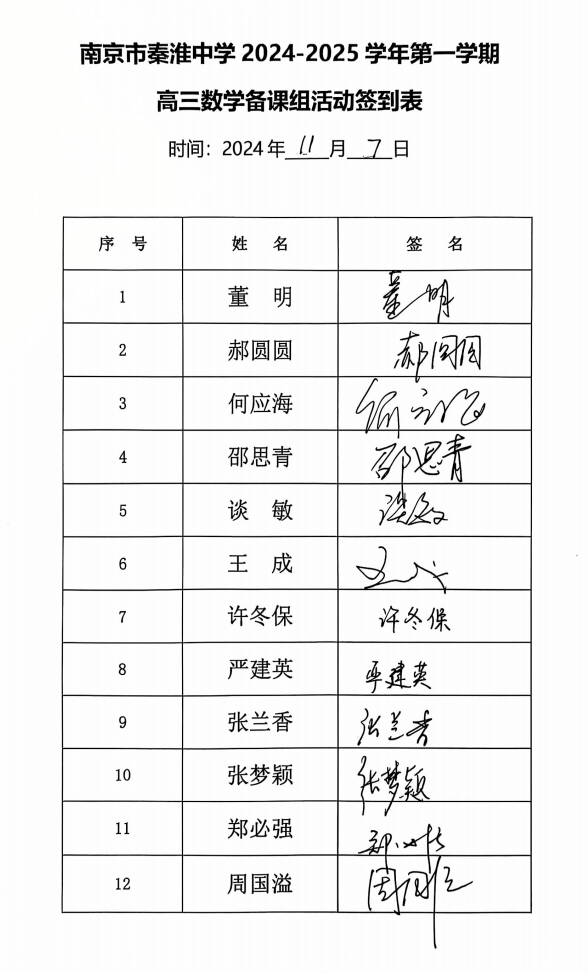 南京市秦淮中学 2024-2025 学年第一学期
高三数学备课组活动签到表
时间：2024年 11 月 7 日
序号 姓名 签名
1 董明 董明
2 郝圆圆 郝圆圆
3 何应海 何应海
4 邵思青 邵思青
5 谈敏 谈敏
6 王成 王成
7 许冬保 许冬保
8 严建英 严建英
9 张兰香 张兰香
10 张梦颖 张梦颖
11 郑必强 郑必强
12 周国溢 周国溢